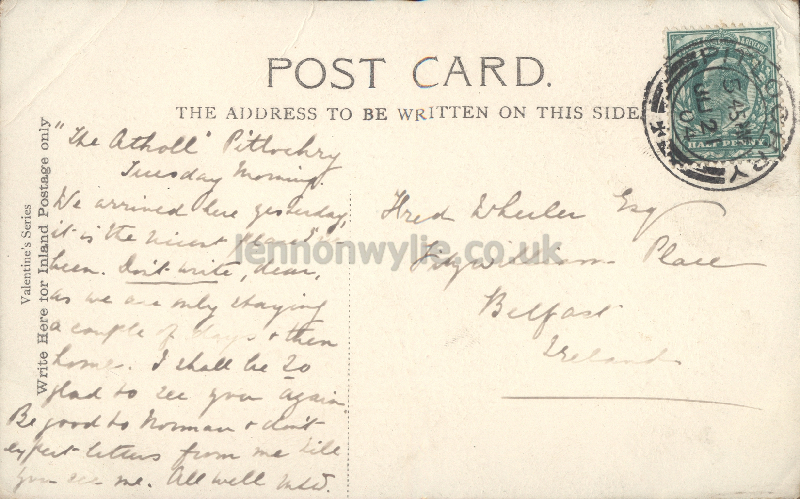 POST CARD.
THE ADDRESS TO BE WRITTEN ON THIS SIDE
Valentine's Series
Write Here for Inland Postage only
"The Atholl" Pitlochry
Tuesday Morning.
We arrived here yesterday,
it is the nicest place I've
been. Don't write, dear,
as we are only staying
a couple of days & then
home. I shall be so
glad to see you again.
Be good to Norman & don't
expect letters from me till
you see me. All well
Fred Wheeler Esq
Fitzwilliam Place
Belfast
Ireland
PITLOCHRY
5 45 PM
12
04
HALF PENNY
lennonwylie.co.uk